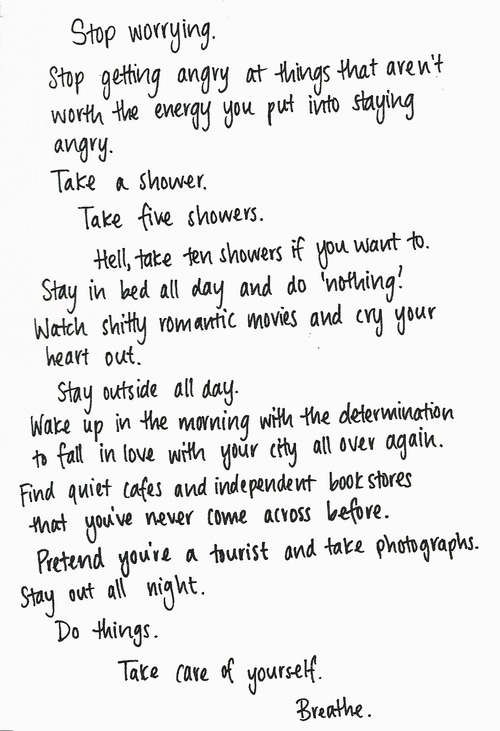 Stop worrying.
Stop getting angry at things that aren't
worth the energy you put into staying
angry.
Take a shower.
Take five showers.
Hell, take ten showers if you want to.
Stay in bed all day and do 'nothing!'
Watch shitty romantic movies and cry your
heart out.
Stay outside all day.
Wake up in the morning with the determination
to fall in love with your city all over again.
Find quiet cafes and independent book stores
that you've never come across before.
Pretend you're a tourist and take photographs.
Stay out all night.
Do things.
Take care of yourself.
Breathe.